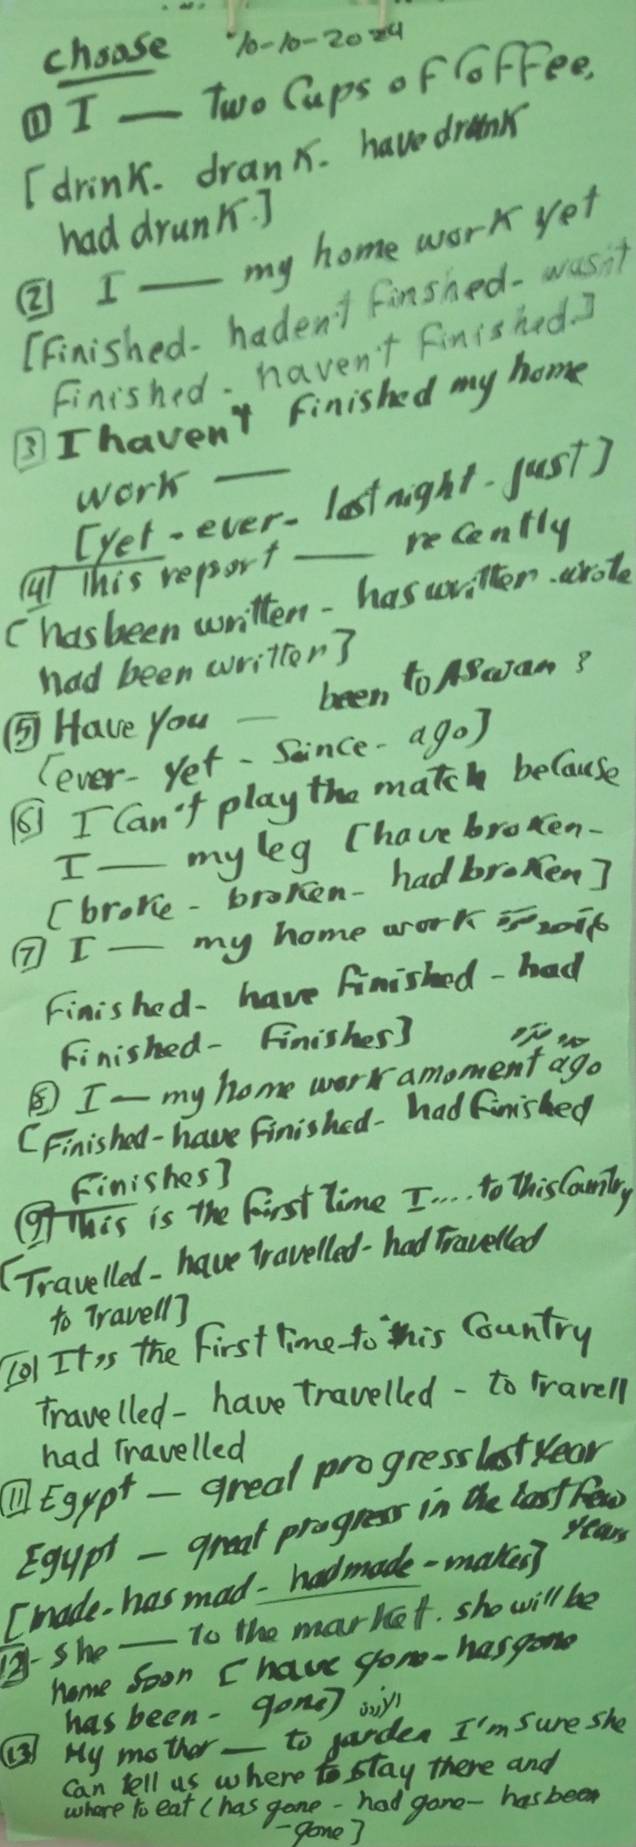 choose 10-10-2024
① I — Two Cups of Coffee.
[drink. drank. have drunk
had drunk.]
② I — my home work yet
[Finished. hadent finshed. wasn't
Finished. haven't finished.]
③ I haven't finished my home
work —
[yet - ever. last night. just]
(4) This report — recently
[has been written - has written. wrote
had been written]
⑤ Have you — been to Aswan?
[ever. yet - Since. ago]
(6) I Can't play the match because
I — my leg [have broken-
[broke - broken - had broken]
⑦ I — my home work
Finished. have finished - had
Finished - Finishes]
⑧ I — my home work amoment ago
[Finished - have finished - had finished
Finishes]
(9) This is the first time I.... to this Country
[Travelled - have travelled - had Travelled
to Travell]
(10) It's the first time - to this Country
Travelled - have travelled - to travell
had travelled
⑪ Egypt — great progress last year
Egypt — great progress in the last Few
years
[made - has mad - had made - makes]
12- she — to the market. she will be
home soon [have gone - has gone
has been - gone]
⑬ My mother — to garden I'm sure she
can tell us where to stay there and
where to eat (has gone - had gone - has been
- gone]